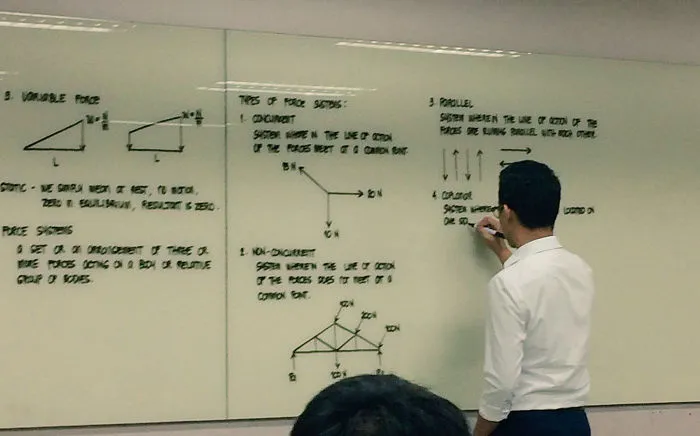 3. VARIABLE FORCE
L
L
STATIC - WE SIMPLY MEAN AT REST, NO MOTION.
ZERO IN EQUILIBRIUM, RESULTANT IS ZERO.
FORCE SYSTEMS
A SET OR AN ARRANGEMENT OF THREE OR
MORE FORCES ACTING ON A BODY OR RELATIVE
GROUP OF BODIES.
TYPES OF FORCE SYSTEMS:
1. CONCURRENT
SYSTEM WHERE IN THE LINE OF ACTION
OF THE FORCES MEET AT A COMMON POINT
15 N
20 N
10 N
2. NON-CONCURRENT
SYSTEM WHEREIN THE LINE OF ACTION
OF THE FORCES DOES NOT MEET AT A
COMMON POINT.
100N
200N
100N
100 N
3. PARALLEL
SYSTEM WHEREIN THE LINE OF ACTION OF THE
FORCES ARE RUNNING PARALLEL WITH EACH OTHER.
4. COPLANAR
SYSTEM WHERE LOCATED ON
ONE